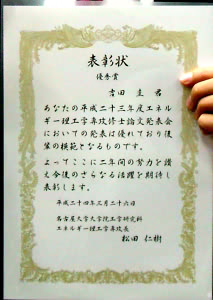 表彰状
優秀賞
吉田 圭 君
あなたの平成二十三年度エネル
ギー理工学専攻修士論文発表会
においての発表は優れており後
輩の模範となるものです。
よってここに二年間の努力を讃
え今後のさらなる活躍を期待し
表彰します。
平成二十四年三月二十六日
名古屋大学大学院工学研究科
エネルギー理工学専攻長
松田 仁樹